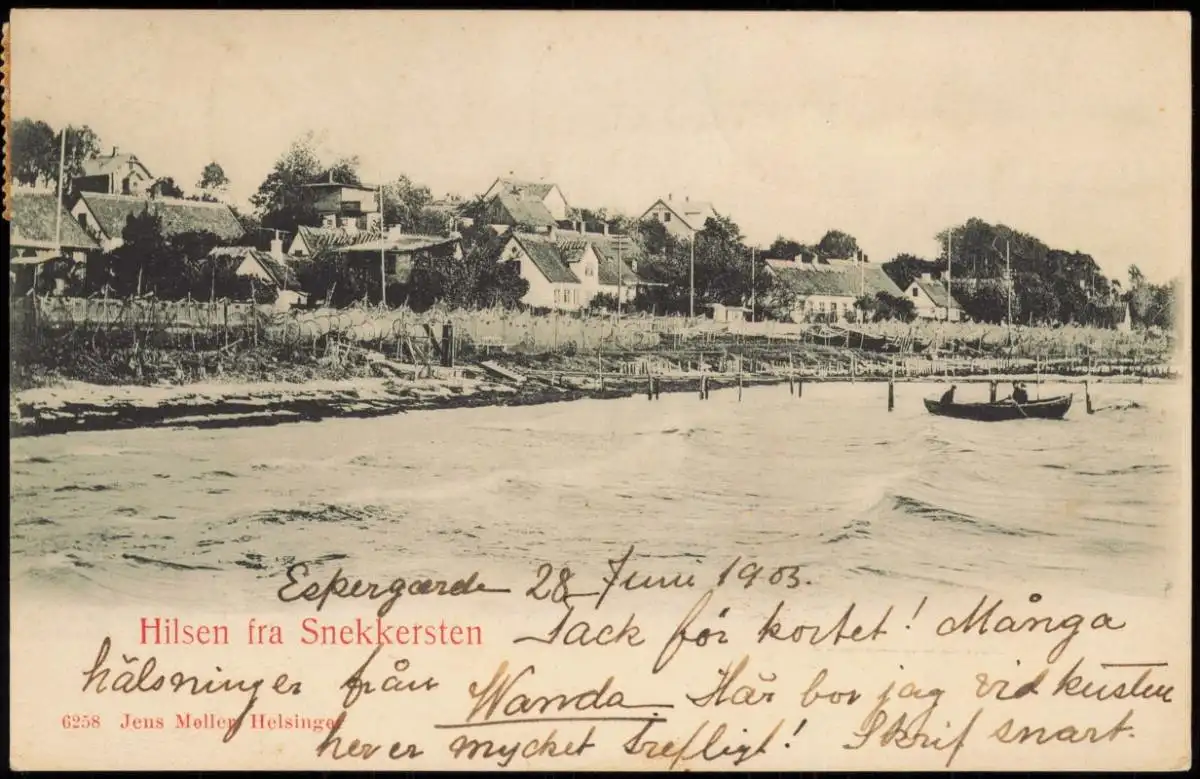 Espergærde 28 Juni 1903.
Hilsen fra Snekkersten
Tack för kortet! Många
hälsninger från Wanda. Här bor jag vid kusten
6258 Jens Møller, Helsingør
her er mycket trefligt! Skrif snart.